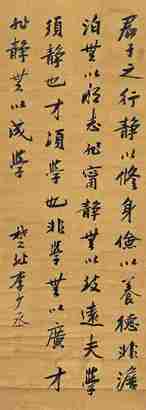 君子之行静以修身俭以養德非澹
泊無以明志非甯静無以致遠夫學
須静也才须學也非學無以廣才
非静無以成學
李少丞